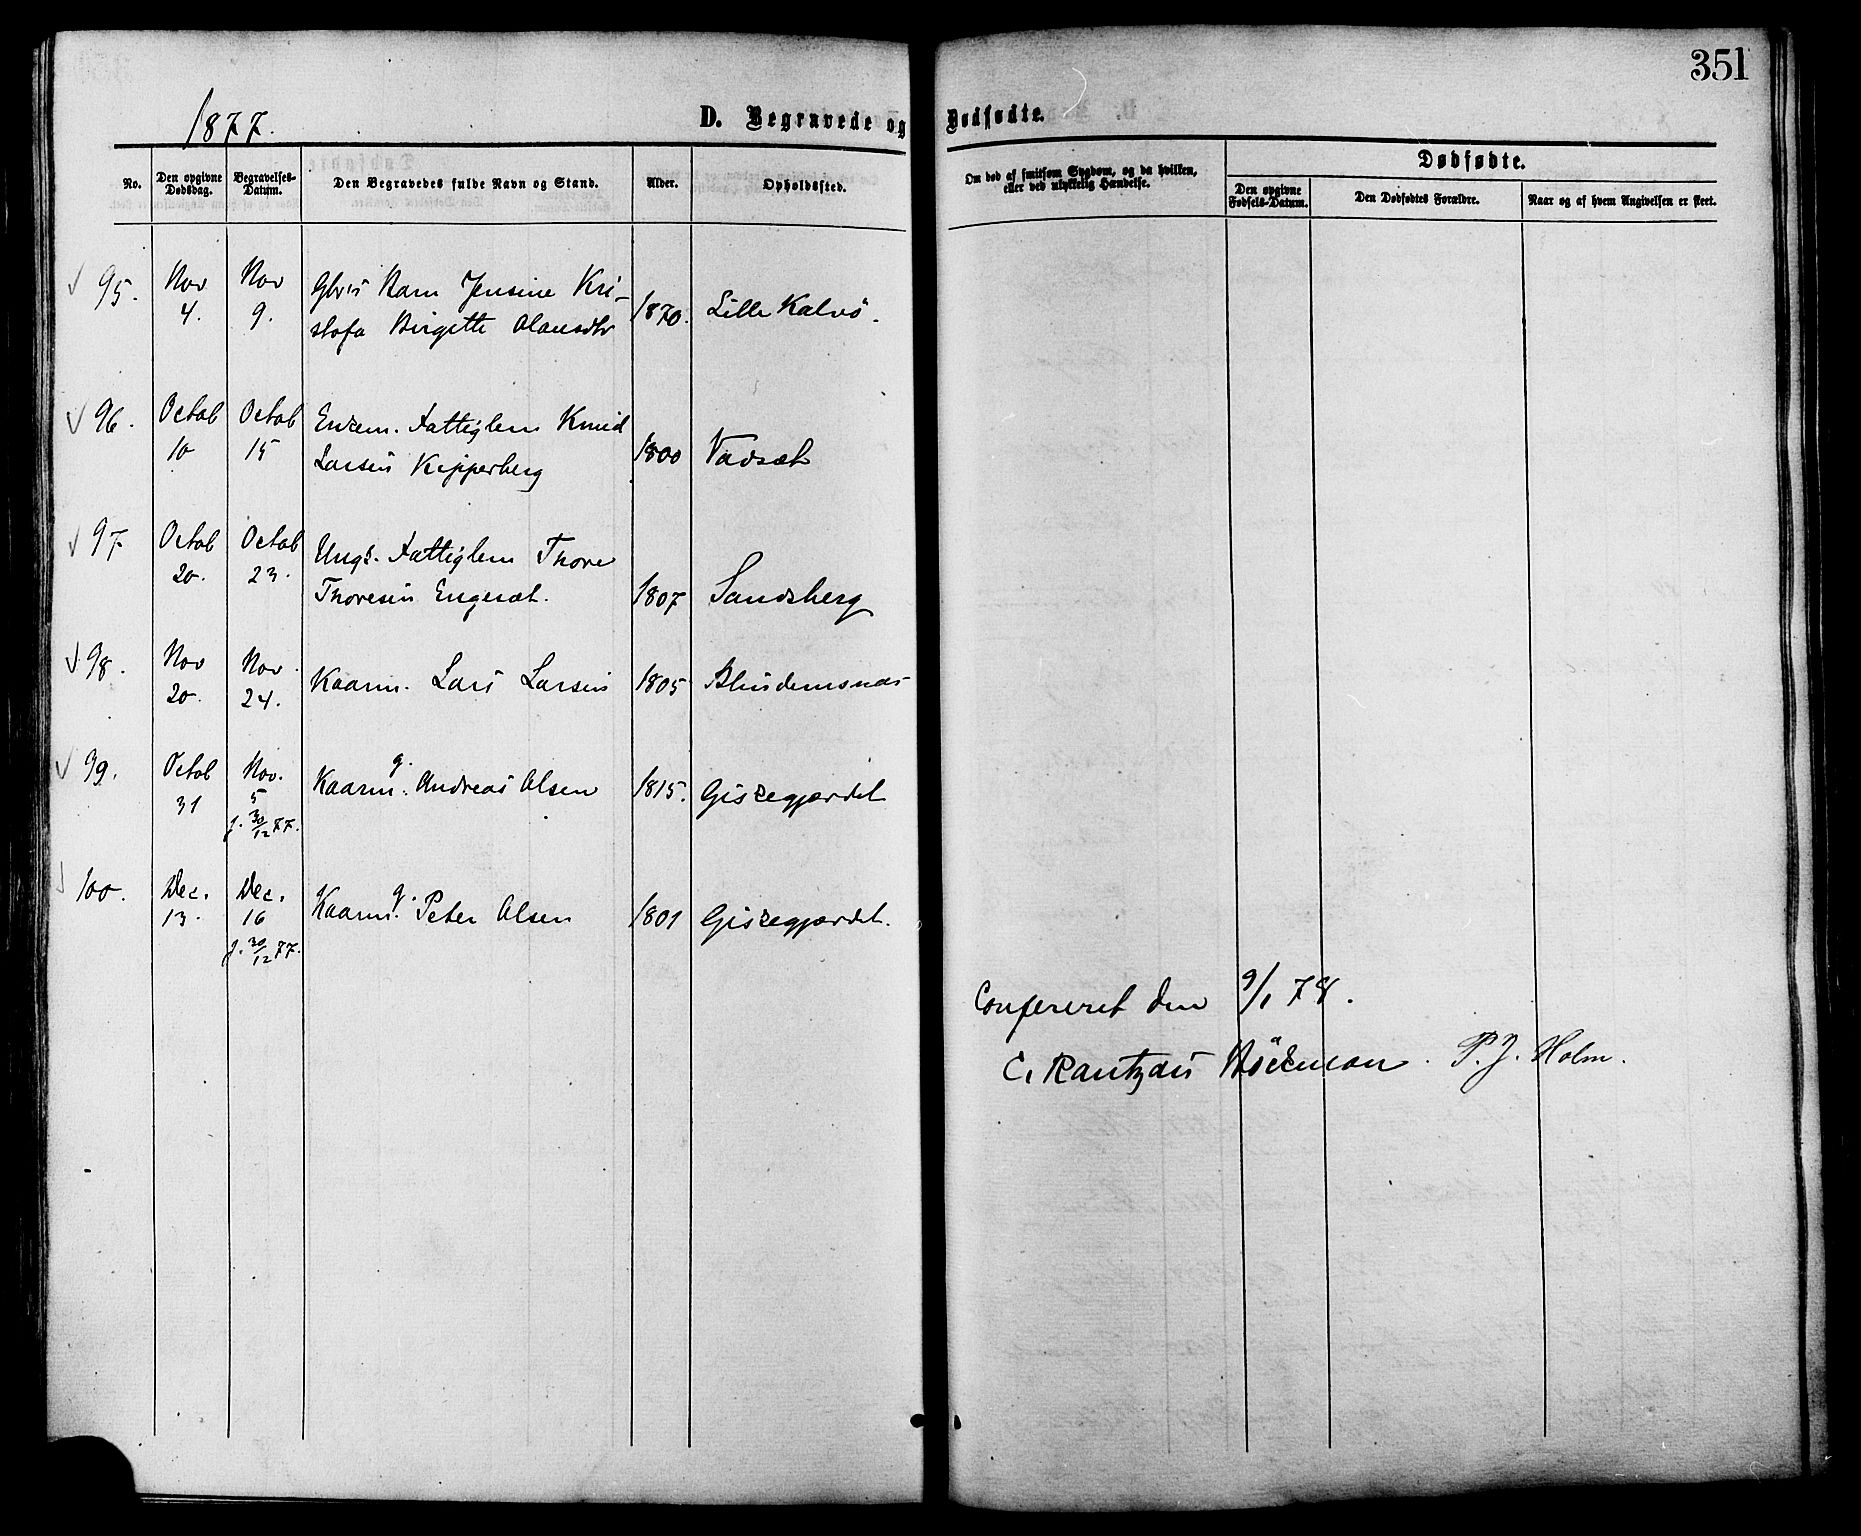 351
1877.
D. Begravede og Dødfødte.
No.
Den opgivne Dødsdag.
Begravelses-Datum.
Den Begravedes fulde Navn og Stand.
Alder.
Opholdssted.
Om død af smitsom Sygdom, og da hvilken,
eller ved ulykkelig Hændelse.
Dødfødte.
Den opgivne Fødsels-Datum.
Den Dødfødtes Forældre.
Naar og af hvem Angivelsen er skeet.
95. Nov 4. Nov 9. Barn Jensine Kri-
stofa Birgitte Olausdtr 1870. Lille Kalvö.
96. Octob 10 Octob 15 Enkem. Fattiglem Knud
Larsen Kipperberg 1800 Vadsæt
97 Octob 20. Octob 23. Ungk. Fattiglem Thore
Thoresen Engesæt. 1807 Sandsberg
98. Nov 20. Nov. 24. Kaarm. Lars Larsen 1805 Blindemsnæs
99. Octob 31 Nov. 5 Kaarm. g. Andreas Olsen 1815. Giskegjærdet
j. 30/12 77.
100. Dec. 13. Dec. 16 Kaarm. g. Peter Olsen 1801 Giskegjærdet.
j. 30/12 77.
Confereret den 9/1 78.
C. Rantzau Böckman. P. J. Holm.